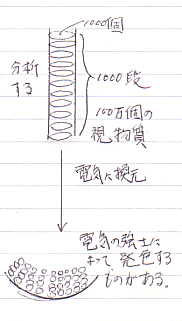 1000個
分析
する
1000段
100万個の
視物質
電気に換元
電気の強士に
よって発色する
ものがある。